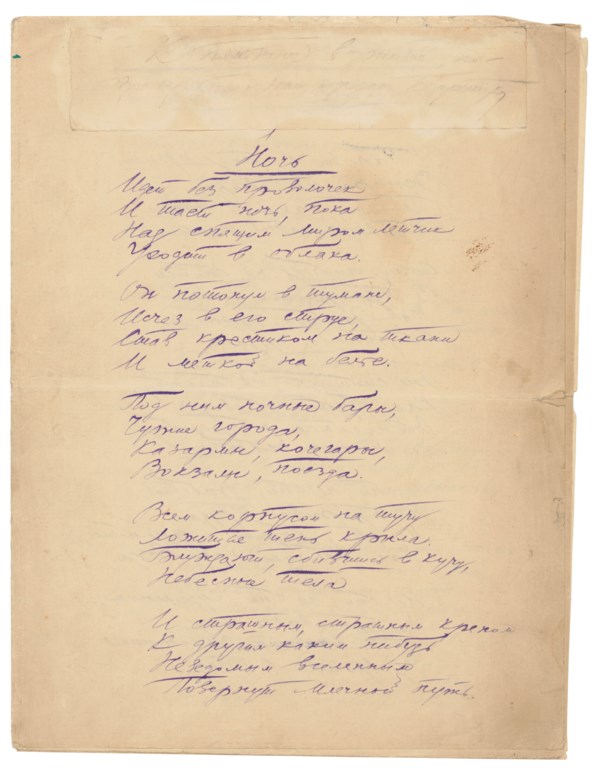 Ночь
Идет без проволочек
И тает ночь, пока
Над спящим миром летчик
Уходит в облака.
Он потонул в тумане,
Исчез в его струе,
Став крестиком на ткани
И меткой на белье.
Под ним ночные бары,
Чужие города,
Казармы, кочегары,
Вокзалы, поезда.
Всем корпусом на тучу
Ложится тень крыла.
Блуждают, сбившись в кучу,
Небесные тела
И страшным, страшным креном
К другим каким нибудь
Неведомым вселенным
Повернут млечный путь.